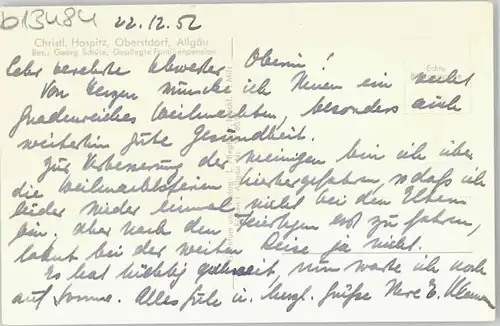 b13484
22.12.52
Christl. Hospitz, Oberstdorf, Allgäu
Bes.: Georg Schüle, Gepflegte Familienpension
Echte
Liebe verehrte Schwester Oberin!
Von Herzen wünsche ich Ihnen ein recht
gnadenreiches Weihnachten, besonders auch
weiterhin gute Gesundheit.
Zur Verbesserung der meinigen bin ich über
die Weihnachtsferien hierhergefahren, sodaß ich
leider wieder einmal nicht bei den Eltern
bin. Aber nach den Feiertagen erst zu fahren,
lohnt bei der weiten Reise ja nicht.
Es hat tüchtig geschneit, nun warte ich noch
auf Sonne. Alles Gute u. herzl. Grüße Ihre E.